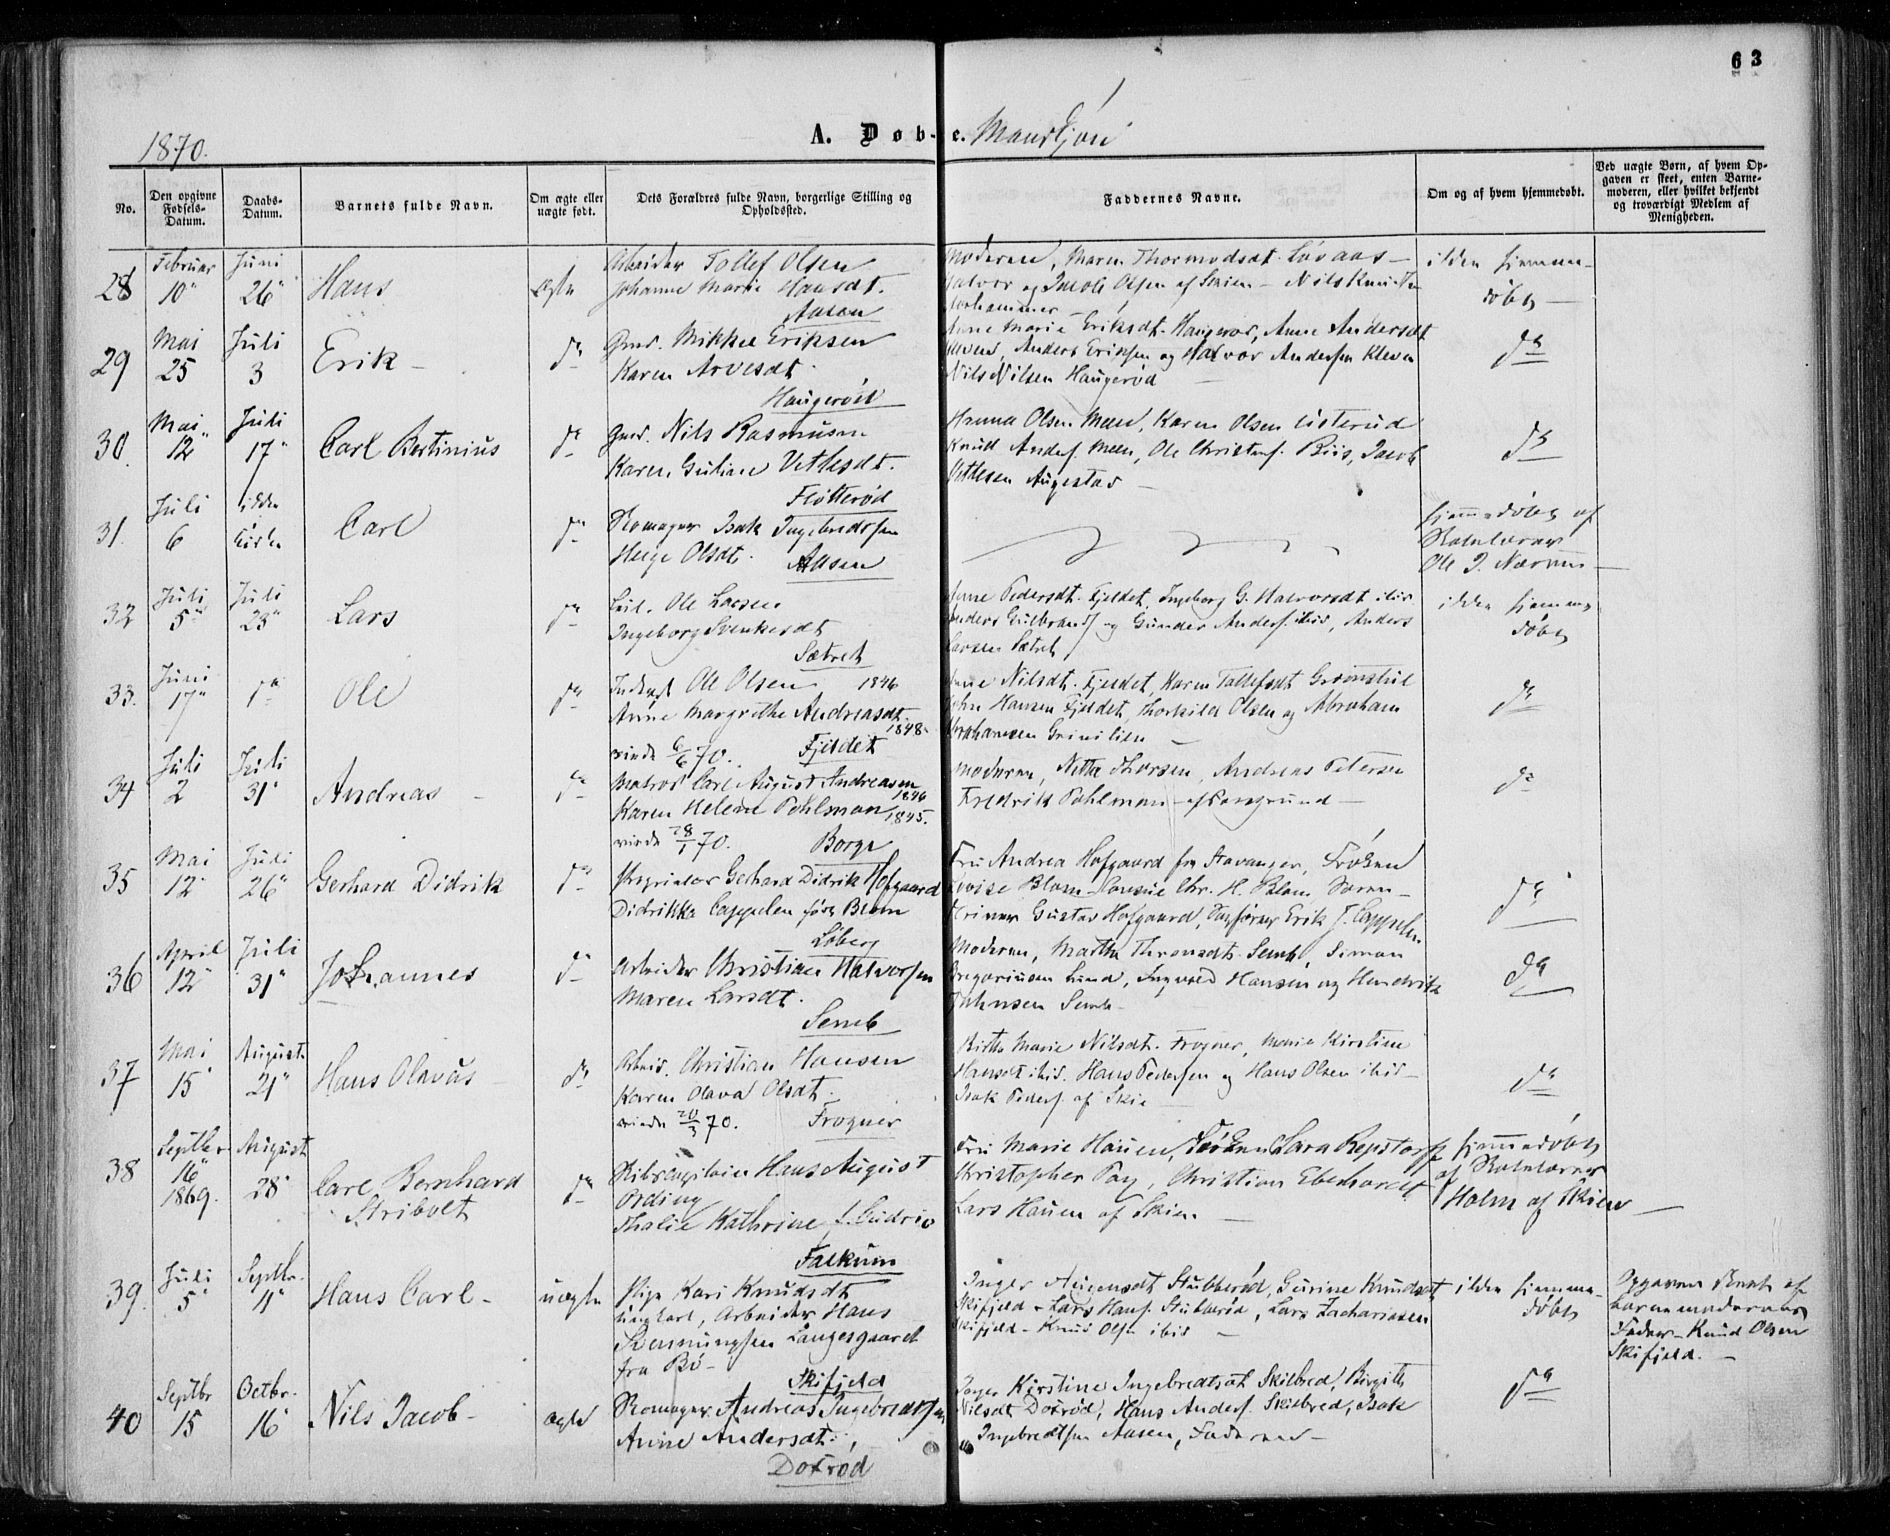 63
1870.
A. Døb-e. Mandkjøn
No.
Den opgivne Fødsels-Datum.
Daabs-Datum.
Barnets fulde Navn.
Om ægte eller uægte født.
Dets Forældres fulde Navn, borgerlige Stilling og Opholdssted.
Faddernes Navne.
Om og af hvem hjemmedøbt.
Ved uægte Børn, af hvem Opgaven er skeet, enten Barnemoderen, eller hvilket bekjendt og troværdigt Medlem af Menigheden.
28
Februar 10
Juni 26
Hans
ægte
Arbeider Tollef Olsen
Johanne Marie Hansdt.
Aasen
Moderen, Maren Thormodsdt. Løvaas
Halvor og Jacob Olsen af Skien - Nils Knudsen
ikke hjemmedøbt
29
Mai 25
Juli 3
Erik
do
Gmd. Mikkel Eriksen
Karen Arvesdt.
Haugerød
Anne Marie Eriksdt. Haugerød, Anne Andersdt
Kleven, Anders Eriksen og Halvor Andersen Kleven
Nils Nilsen Haugerød
do
30
Mai 12
Juli 17
Carl Bertinius
do
Gmd. Nils Rasmusen
Karen Guliane Vetlesdt.
Fløtterød
Hanna Olsen Meen, Karen Olsen
Knud Anders. Meen, Ole Christens. Riis, Jacob
Vetlesen Augestad
do
31
Juli 6
ikke Kirke
Carl
do
Romager Isak Ingebredtsen
Helge Olsdt.
Aasen
hjemmedøbt af
Skolelærer
Ole J. Nærum
32
Juli 5
Juli 23
Lars
do
Leil. Ole Larsen
Ingeborg Svenkesdt
Sætret
Anne Pedersdt. Fjeldet, Ingeborg G. Halvorsdt ibid.
Anders Gulbrands. og Gunder Anders. ibid, Anders
Larsen Sætret
ikke hjemmedøbt
33.
Juni 17
do
Ole
do
Inderst Ole Olsen 1846
Anne Margrethe Andreasdt. 1848
viede 6/6 70. Fjeldet
Anne Nilsdt. Fjeldet, Karen Tollefsdt Grønstul
John Hansen Fjeldet, Thorkild Olsen og Abraham
Abrahamsen Grinilien
do
34
Juli 2
Juli 31
Andreas
do
Matros Carl August Andreasen 1846
Karen Helene Pohlman 1845.
viede 28/1 70. Borge
Moderen, Netta Thorsen, Andreas Petersen
Fredrik Pohlman - af Porsgrund
do
35
Mai 12
Juli 26
Gerhard Didrik
do
Proprietær Gerhard Didrik Hofgaard
Didrikke Cappelen født Blom
Løberg
Fru Andrea Hofgaard fra Stavanger, Frøken
Lovise Blom - Consul Chr. H. Blom, Søren
Gustav Hofgaard, Sagfører Erik J. Cappelen
do
36
April 12
Juli 31
Johannes
do
Arbeider Christian Halvorsen
Maren Larsdt.
Semb
Moderen, Marthe Thronsdt. Semb, Simon
Gregoriusen Lund, Ingvald Hansen og Hendrik
Johnsen Semb
do
37
Mai 15
August 21
Hans Olavus
do
Arbeid. Christian Hansen
Karen Olava Olsdt.
viede 20/3 70. Frogner
Birthe Marie Nilsdt. Frogner, Maria Kirstine
Hansdt ibid. Hans Pedersen og Hans Olsen ibid
Isak Peders. af Skien
do
38
Septbr 16 1869.
August 28
Carl Bernhard
Stribolt
do
Skibscapitain Hans August
Ording
Thalie Kathrine f.
Falkum
Fru Marie Hauen, Frøken Lara Repstorff
Christopher Pay, Christian Eberhardt
Lars Hauen af Skien
hjemmedøbt
af Skolelærer
Holm af Skien
39.
Juli 5
Septbr. 11
Hans Carl
uægte
Pige Kari Knudsdt
Ungkarl, Arbeider Hans
Langesgaard
fra Bø
Skifjeld
Inger Stubberød, Gurine Knudsdt
Skifjeld - Lars Hans. Stubberød, Lars Zachariasen
Skifjeld - Knud Olsen ibid
ikke hjemmedøbt
Opgaven skeet af
barnemoderens
Fader - Knud Olsen
Skifjeld.
40
Septbr 15
Octbr. 16
Nils Jacob
ægte
Romager Andreas Ingebredtsen
Anne Andersdt.
Doxrød
Inger Kirstine Ingebredtsdt Skilbred, Birgitte
Nilsdt Doxrød, Hans Anders. Skilbred, Isak
Ingebredtsen Aasen, Faderen
do